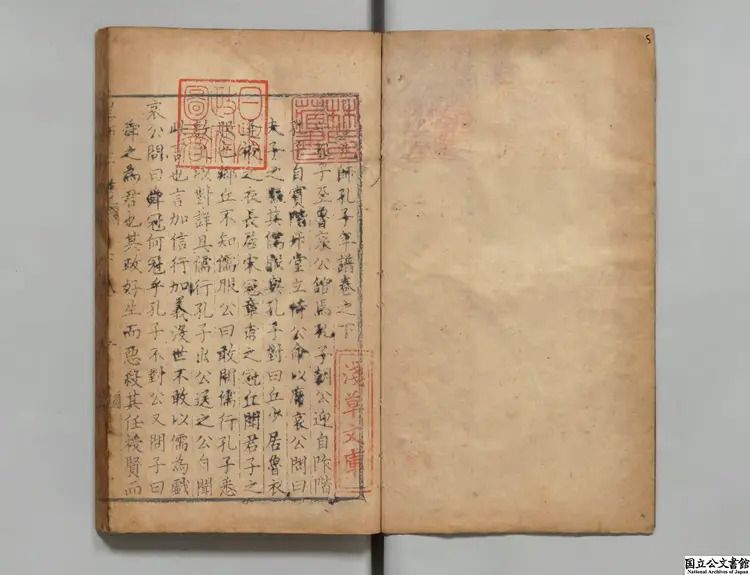 師孔子年譜卷之下
子至魯哀公館焉孔子對公迎自阼階
自賓階升堂立侍公命以席哀公問曰
夫子之服其儒服與孔子對曰丘少居魯衣
逢掖之衣長居宋冠章甫之冠丘聞君子之
服也鄉丘不知儒服公曰敢問儒行孔子悉
數以對詳具儒行孔子出公送之公自聞
此語也言加信行加義沒世不敢以儒為戲
哀公問曰舜冠何冠乎孔子不對公又問子曰
舜之為君也其政好生而惡殺其任授賢而
林氏藏書
日本政府圖書
淺草文庫
5
国立公文書館
National Archives of Japan